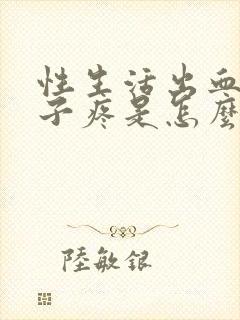 性生活出血
子疼是怎麼
陸敏銀